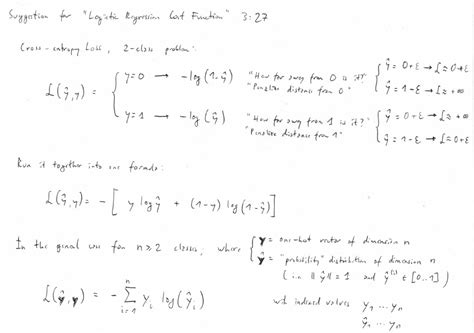 Suggestion for "Logistic Regression Cost Function" 3:27
Cross-entropy Loss, 2-class problem:
L(ŷ,y) = { y=0 → -log(1-ŷ) "How far away from 0 is it?" "Penalise distance from 0" { ŷ = 0+ε → L ≈ 0+ε
ŷ = 1-ε → L ≈ +∞
y=1 → -log(ŷ) "How far away from 1 is it?" "Penalise distance from 1" { ŷ = 0+ε → L ≈ +∞
ŷ = 1-ε → L ≈ 0+ε
Run it together into one formula:
L(ŷ,y) = -[ y log ŷ + (1-y) log(1-ŷ) ]
In the general case for n ≥ 2 classes, where { y = one-hot vector of dimension n
ŷ = "probability" distribution of dimension n
(i.e. ||ŷ|| = 1 and ŷ⁽ⁱ⁾ ∈ [0..1])
L(ŷ,y) = - Σ_{i=1}^{n} y_i log(ŷ_i)
with indexed values y_1 ... y_n
ŷ_1 ... ŷ_n